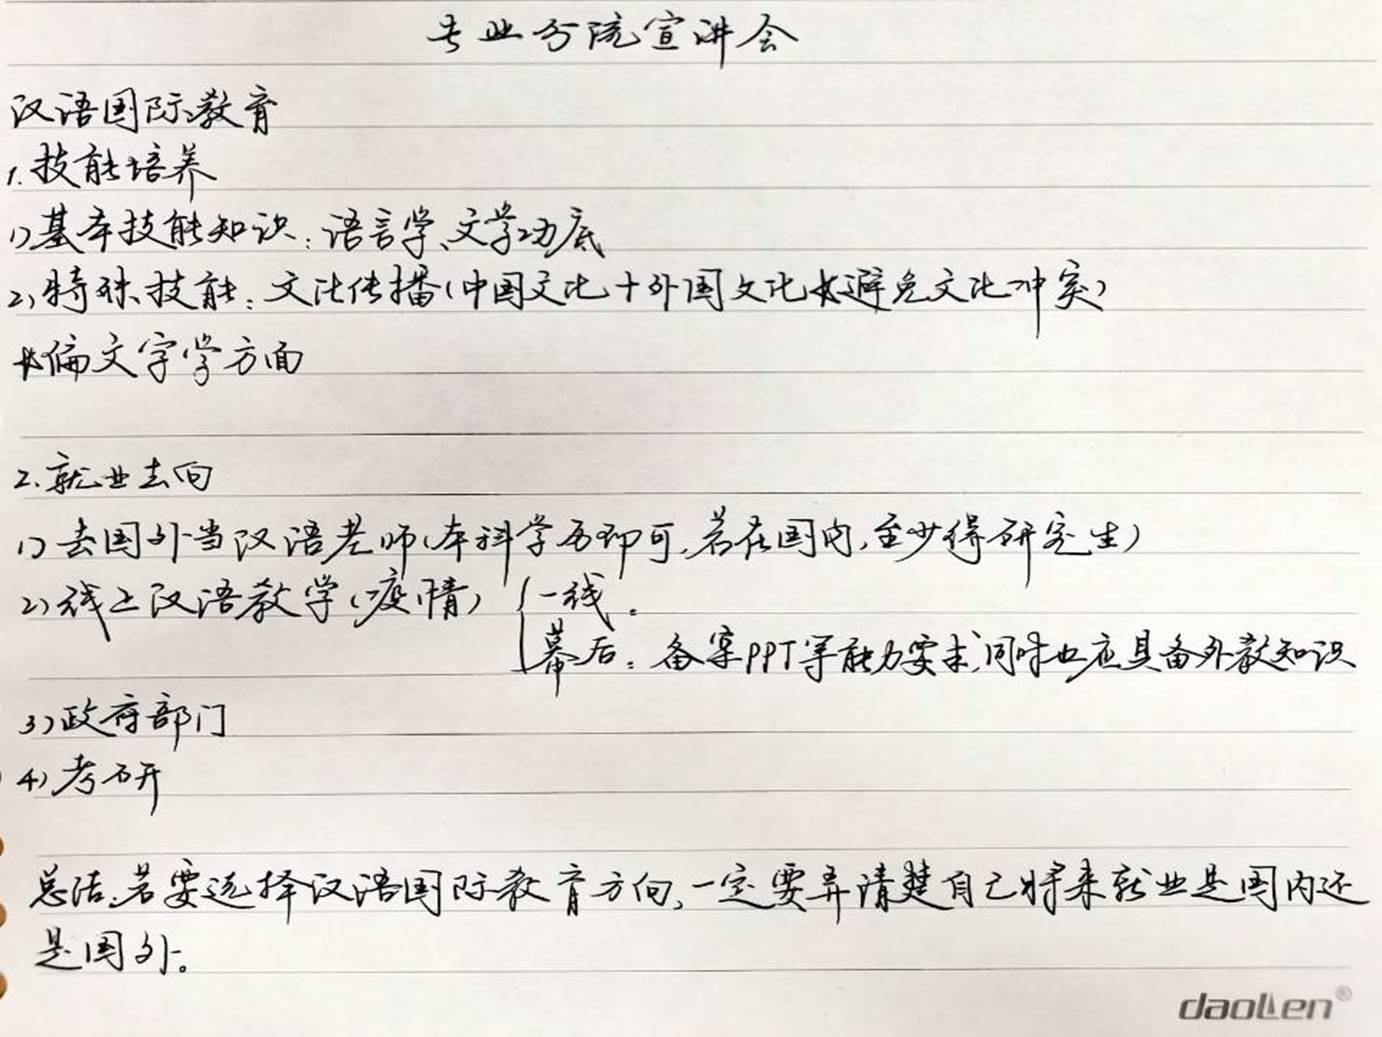 专业分流宣讲会
汉语国际教育
1.技能培养
1)基本技能知识:语言学、文学功底
2)特殊技能:文化传播(中国文化+外国文化*避免文化冲突)
*偏文字学方面
2.就业去向
1)去国外当汉语老师(本科学历即可,若在国内,至少得研究生)
2)线上汉语教学(疫情) { 一线。
幕后:备案PPT等能力要求,同时也应具备外教知识
3)政府部门
4)考研
总结:若要选择汉语国际教育方向,一定要弄清楚自己将来就业是国内还
是国外。
daolen®